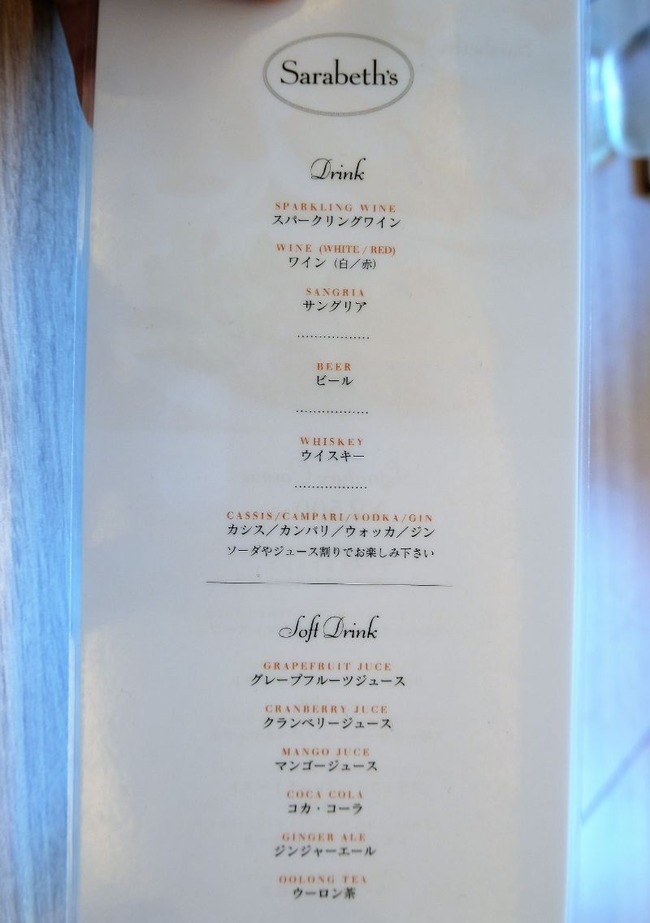 Sarabeth's
Drink
SPARKLING WINE
スパークリングワイン
WINE (WHITE / RED)
ワイン（白／赤）
SANGRIA
サングリア
BEER
ビール
WHISKEY
ウイスキー
CASSIS/CAMPARI/VODKA/GIN
カシス／カンパリ／ウォッカ／ジン
ソーダやジュース割りでお楽しみ下さい
Soft Drink
GRAPEFRUIT JUCE
グレープフルーツジュース
CRANBERRY JUCE
クランベリージュース
MANGO JUCE
マンゴージュース
COCA COLA
コカ・コーラ
GINGER ALE
ジンジャーエール
OOLONG TEA
ウーロン茶